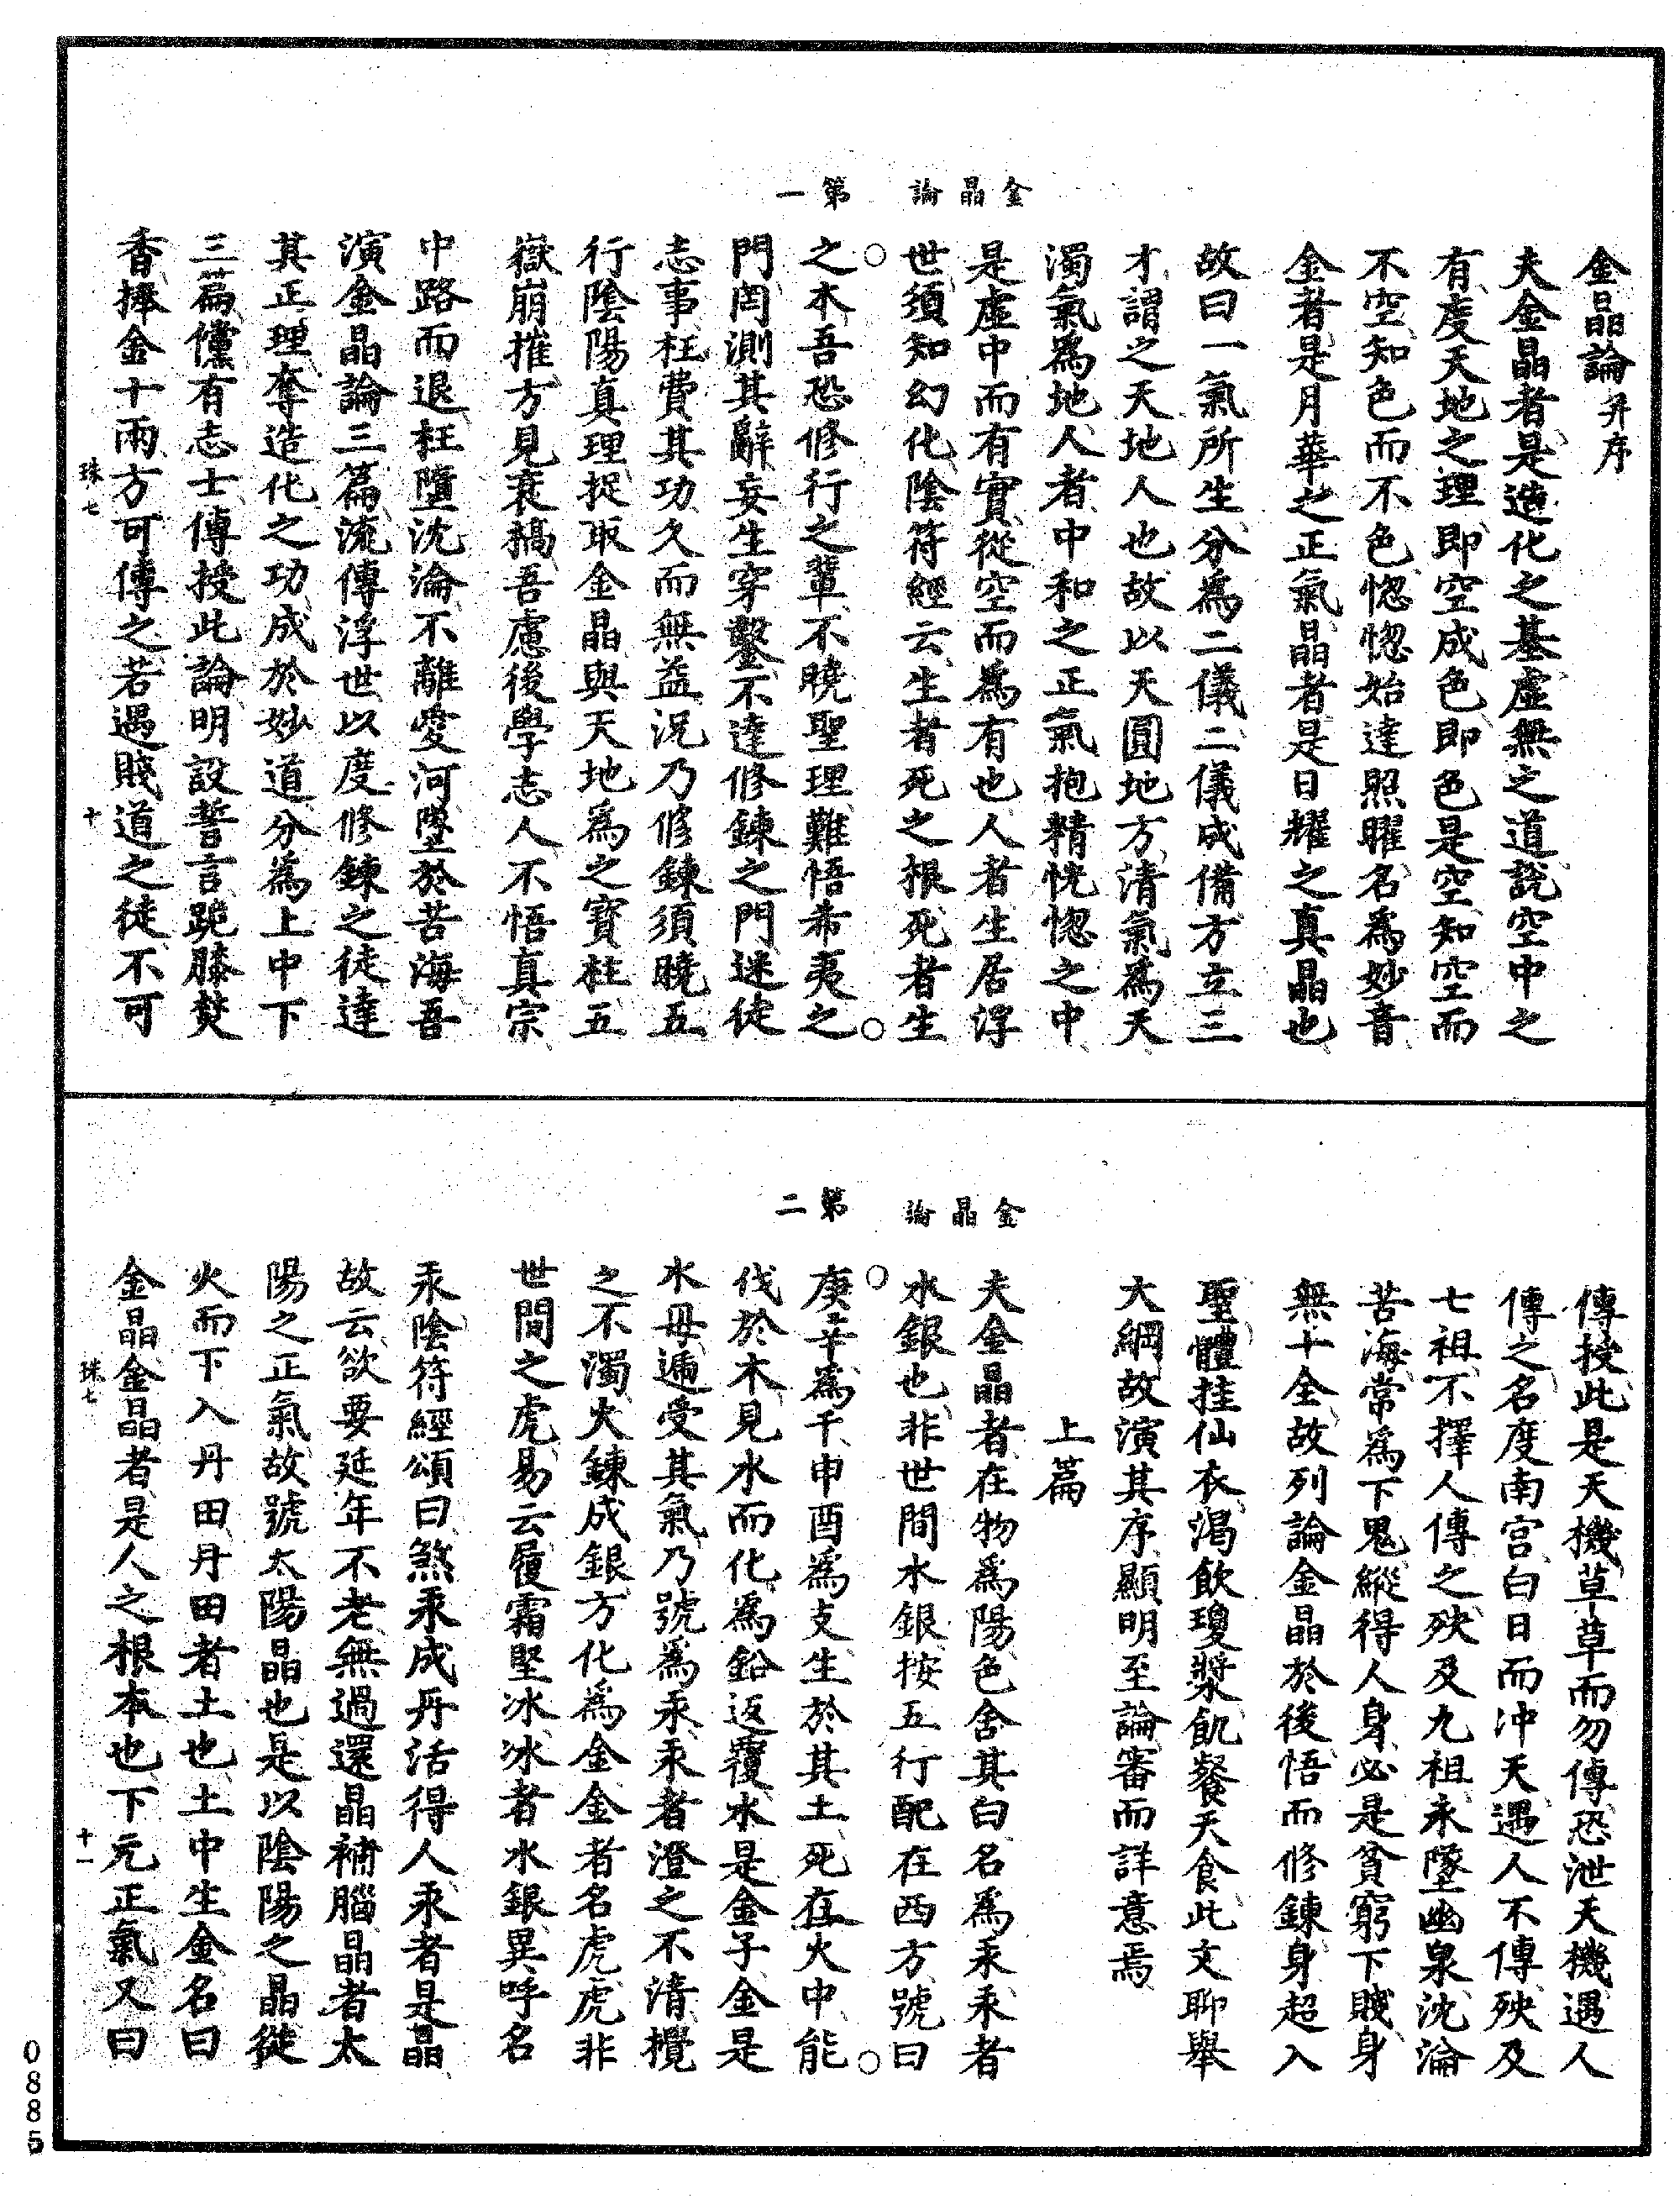 金晶論
第一
金晶論并序
夫金晶者是造化之基虛無之道說空中之
有度天地之理即空成色即色是空知空而
不空知色而不色惚惚始達照曜名為妙音
金者是月華之正氣晶者是日耀之真晶也
故曰一氣所生分為二儀二儀成備方立三
才謂之天地人也故以天圓地方清氣為天
濁氣為地人者中和之正氣抱精恍惚之中
是虛中而有實從空而為有也人者生居浮
世須知幻化陰符經云生者死之根死者生
之木吾恐修行之輩不曉聖理難悟希夷之
門罔測其辭妄生穿鑿不達修鍊之門迷徒
志事枉費其功久而無益況乃修鍊須曉五
行陰陽真理捉取金晶與天地為之寶柱五
嶽崩摧方見衰槁吾慮後學志人不悟真宗
中路而退枉墮沈淪不離愛河墜於苦海吾
演金晶論三篇流傳浮世以度修鍊之徒達
其正理奪造化之功成於妙道分為上中下
三篇儻有志士傳授此論明設誓言跪膝焚
香捧金十兩方可傳之若遇賤道之徒不可
珠七
十
金晶論
第二
傳授此是天機草草而勿傳恐泄天機遇人
傳之名度南宫白日而沖天遇人不傳殃及
七祖不擇人傳之殃及九祖永墜幽泉沈淪
苦海常為下鬼縱得人身必是貧窮下賤身
無十全故列論金晶於後悟而修鍊身超入
聖體挂仙衣渴飲瓊漿飢餐天食此文聊舉
大綱故演其序顯明至論審而詳意焉
上篇
夫金晶者在物為陽色含其白名為汞汞者
水銀也非世間水銀按五行配在西方號曰
庚辛為干申酉為支生於其土死在火中能
伐於木見水而化為鉛返覆水是金子金是
水母遞受其氣乃號為汞汞者澄之不清攪
之不濁火鍊成銀方化為金金者名虎虎非
世間之虎易云履霜堅冰冰者水銀異呼名
汞陰符經頌曰煞汞成丹活得人汞者是晶
故云欲要延年不老無過還晶補腦晶者太
陽之正氣故號太陽晶也是以陰陽之晶從
火而下入丹田丹田者土也土中生金名曰
金晶金晶者是人之根本也下元正氣又曰
珠七
十一
0885